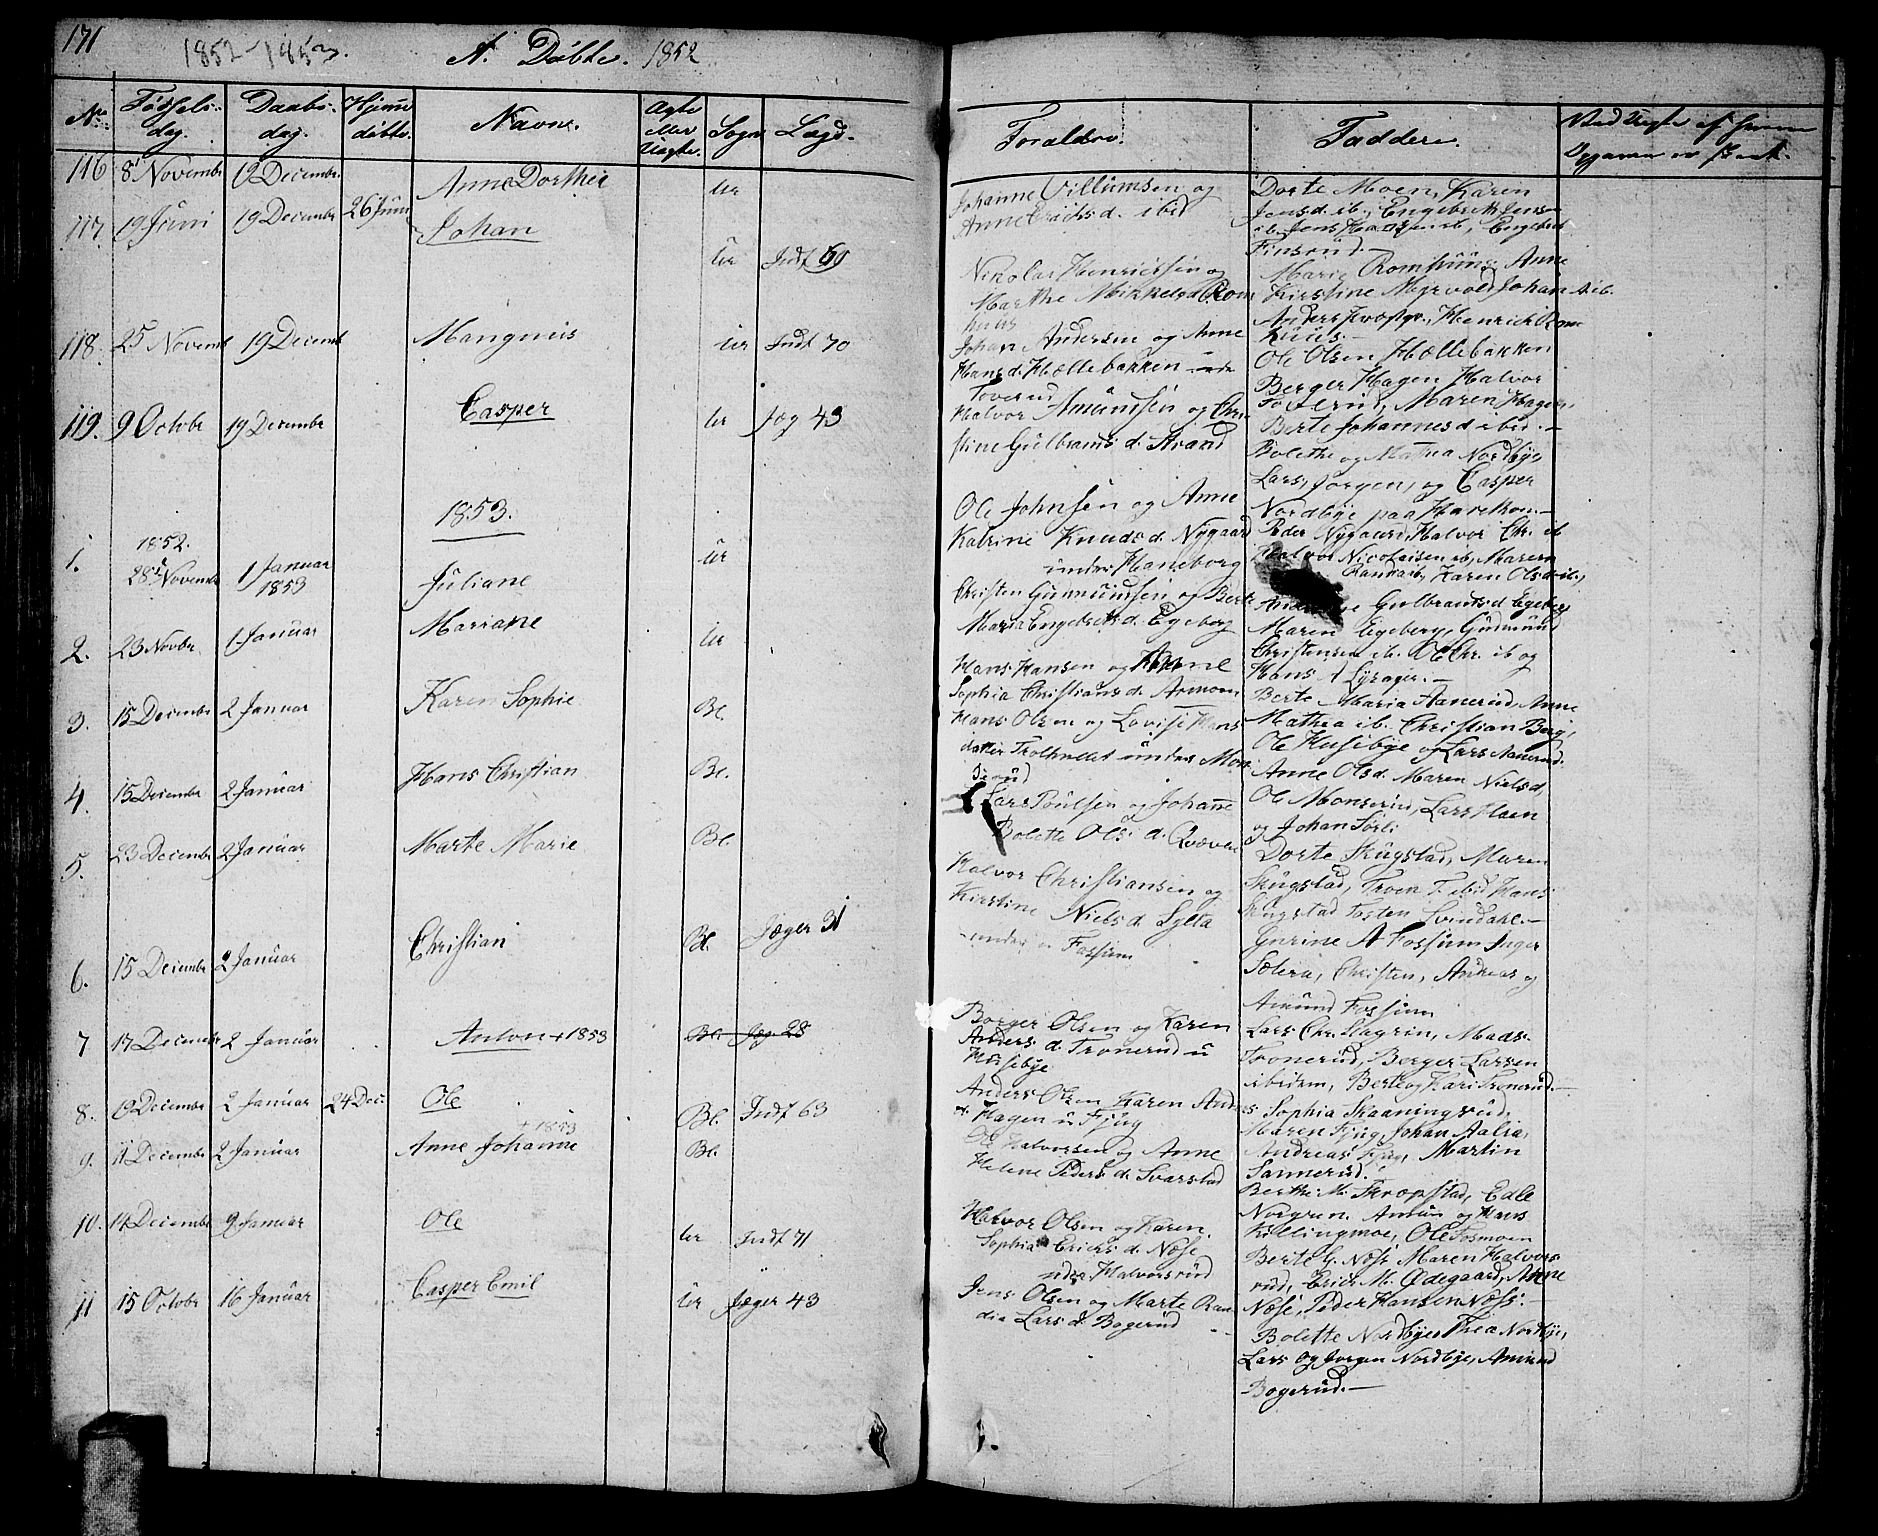 171
1852-1853.
A. Döbte. 1852
No. Fødsels-dag. Daabs-dag. Hjemme døbte. Navne. Ægte eller Uægte. Sogn Lægd.
Forældre. Faddere.
116 8 Novembr 19 Decembr. Anne Dorthea Ur
Johanne Villumsen og
Anne Erichs d. ibid
Dorte Moen, Karen
Jensd. ib., Engebret Jens-
Finsrud.-
117. 19 Juni 19 Decembr 26 Juni Johan Ur Indf 69
Nikolai Henriksen og
Marthe Mikkelsd Rom
huus
Marie Romhuus, Anne
Kirstine Myrvold, Johan A ib.
Henrik Rom
huus.-
118. 25 Novemb 19 Decemb Mangneus Ur Indf 70
Johan Andersen og Anne
Hans d. Hællebakken
Toverud
Ole Olsen Hællebakken
Berger Hagen, Halvor
Toverud, Maren Hagen,
Berte Johannesd ibid.-
119. 9 Octobr 19 Decembr Casper Ur Jæg 43
Halvor Amundsen og Chri-
stine Gulbrands d. Strand
Bolette og Mathea Nordbye,
Lars, Jørgen, og Casper
Nordbye paa
1853.
1. 1852. 28 Novembr 1 Januar 1853 Juliane Ur
Ole Johnsen og Anne
Katrine Knuds d. Nygaard
under Haneborg
Peder Nygaard, Halvor Chr. ib
Halvor Nicolaisen ib, Maren
ib, Karen Olsd ib.,
2. 23 Novbr. 1 Januar Mariane Ur
Christen Gunnundsen og Berte
Maria Engebrets d. Egeberg
Gulbrands d Egeberg
Maren Egeberg, Gudmund
Christensen ib. Ole Chr. ib og
Hans A Lysager.-
3. 15 Decembr 2 Januar Karen Sophie Bl.
Hans Hansen og Anne
Sophia Christians d. Aamoen
Berte Maria Aanerud, Anne
Mathea ib. Christian Berg,
Ole Husebye og Lars Aanerud.
4. 15 Decembr 2 Januar Hans Christian Bl.
Hans Olsen og Lovise Hans
datter Trolhullet under Mon
serud
Anne Olsd. Maren Nielsd
Ole Monserud, Lars Haen
og Johan Sørli
5. 23 Decembr 2 Januar Marte Marie Bl.
Lars Poulsen og Johane
Bolette Ols. d. Qværne
Dorte Skugstad, Maren
Skugstad, Troen T. ibid Hans
Skugstad Tosten Svindahl.-
6. 15 Decembr 2 Januar Christian Bl. Jæger 31
Halvor Christiansen og
Kirstine Niels d. Sylta
under Fossum
Gurine A Fossum Inger
Sætera, Christen, Andreas og
Amund Fossum
7 17 Decembr 2 Januar Anton + 1853 Bl. Jæg. 28
Borger Olsen og Karen
Anders d. Tronerud u
Husebye
Lars Chr. Slagrin, Mads.
Tronerud, Berger Larsen
ibidem, Berte og Kari Tronerud.-
8. 19 Decembr 2 Januar 24 Dec. Ole Bl. Indf 63
Anders Olsen Karen And
d. Hagen u Fjug
Sophia Skaaningsrud,
Maren Fjug, Johan Aalia,
Andreas Fjug, Martin
Sannerud.
9. 11 Decembr 2 Januar + 1853 Anne Johanne Bl.
Ole Halvorsen og Anne
Helene Peders d. Svarstad
Berthe M. Skropstad, Edle
Norgren, Amun og Hans
Killingmoe, Ole Tosmoen
10. 14 Decembr 9 Januar Ole Ur Indf 71
Halvor Olsen og Karen.
Sophia Erichs d. Næse
under Halvorsrud
Berte G. Næse Maren Halvors
rud, Erich M. Ødegaard, Anne
Næse, Peder Hansen Næss.-
11 15 Octobr 16 Januar Casper Emil Ur Jæger 43
Jens Olsen og Marte Ran
dia Lars d. Bogerud
Bolette Nordbye, Thea Nordbye,
Lars og Jorgen Nordbye, Amund
Bogerud.-